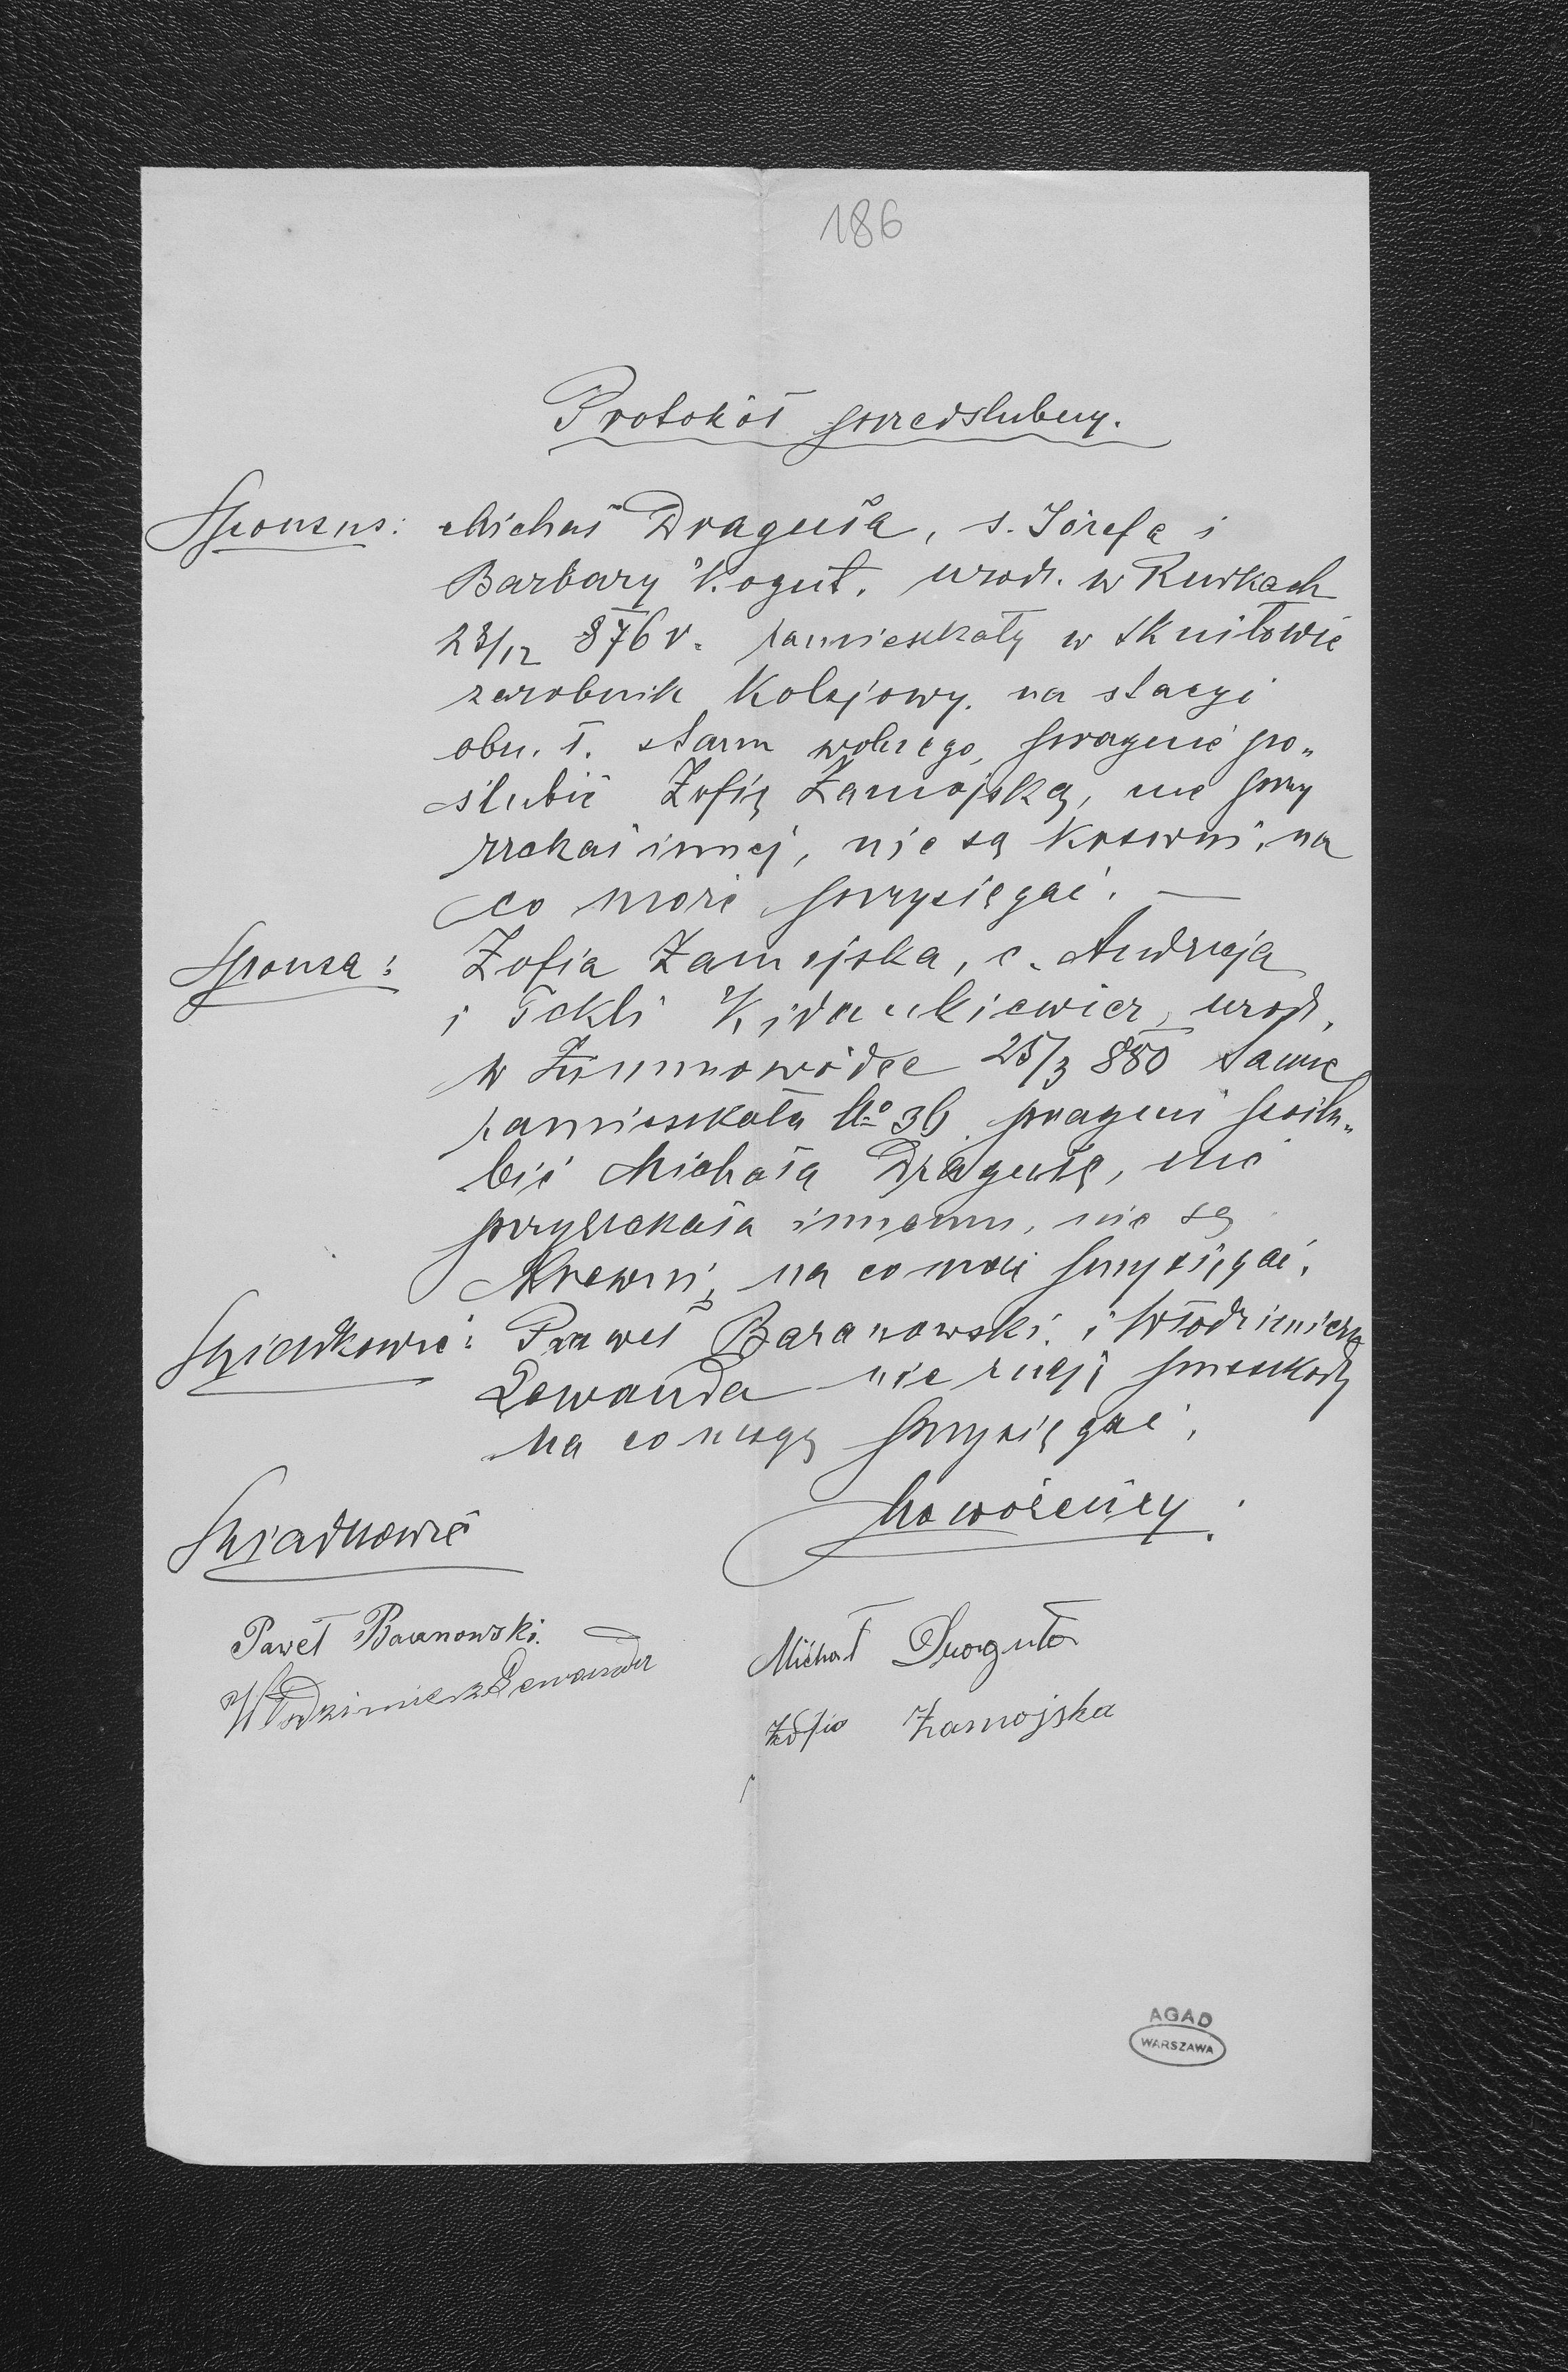 186
Protokół przedślubny.
Sponsus: Michał Draguła, s. Józefa i
Barbary Kogut, urodz. w Rudkach
23/12 876 r. zamieszkały w Skniłowie
zarobnik kolejowy na stacyi
obrz. ł. stanu wolnego, pragnie po„
ślubić Zofię Zamojską, nie przy
rzekał innej, nie są krewni, na
co może przysięgać. —
Sponsa: Zofia Zamojska, c. Andrzeja
i Tekli urodz.
w Zimnowódce 25/3 880 tamże
zamieszkała No 36 pragnie poślu„
bić Michała Dragułę, nie
przyrzekała innemu, nie są
krewni, na co może przysięgać.
Świadkowie: Paweł Baranowski i Włodzimierz
Lewanda nie znają przeszkody
na co mogą przysięgać.
Nowożeńcy.
Świadkowie
Paweł Baranowski.
Włodzimierz Lewanda
Michał Draguła
Zofia Zamojska
AGAD
WARSZAWA